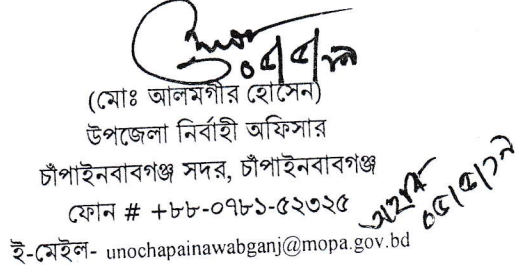 ০৫/৫/১৯
(মোঃ আলমগীর হোসেন)
উপজেলা নির্বাহী অফিসার
চাঁপাইনবাবগঞ্জ সদর, চাঁপাইনবাবগঞ্জ
ফোন # +৮৮-০৭৮১-৫২৩২৫
০৫/৫/১৯
ই-মেইল- unochapainawabganj@mopa.gov.bd